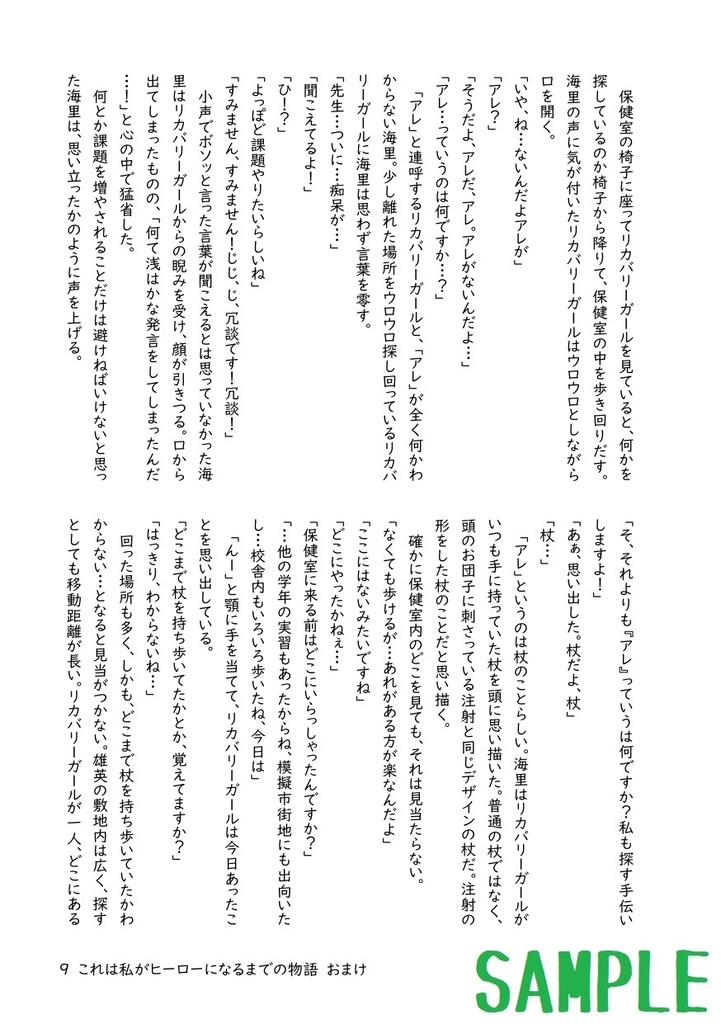 保健室の椅子に座ってリカバリーガールを見ていると、何かを
探しているのか椅子から降りて、保健室の中を歩き回りだす。
海里の声に気が付いたリカバリーガールはウロウロとしながら
口を開く。
「いや、ね…ないんだよアレが」
「アレ？」
「そうだよ、アレだ、アレ。アレがないんだよ…」
「アレ…っていうのは何ですか…？」
　「アレ」と連呼するリカバリーガールと、「アレ」が全く何かわ
からない海里。少し離れた場所をウロウロ探し回っているリカバ
リーガールに海里は思わず言葉を零す。
「先生…ついに…痴呆が…」
「聞こえてるよ！」
「ひ！？」
「よっぽど課題やりたいらしいね」
「すみません、すみません！じじ、じ、冗談です！冗談！」
　小声でボソッと言った言葉が聞こえるとは思っていなかった海
里はリカバリーガールからの睨みを受け、顔が引きつる。口から
出てしまったものの、「何て浅はかな発言をしてしまったんだ
…！」と心の中で猛省した。
　何とか課題を増やされることだけは避けねばいけないと思っ
た海里は、思い立ったかのように声を上げる。
「そ、それよりも『アレ』っていうは何ですか？私も探す手伝い
しますよ！」
「あぁ、思い出した。杖だよ、杖」
「杖…」
　「アレ」というのは杖のことらしい。海里はリカバリーガールが
いつも手に持っていた杖を頭に思い描いた。普通の杖ではなく、
頭のお団子に刺さっている注射と同じデザインの杖だ。注射の
形をした杖のことだと思い描く。
　確かに保健室内のどこを見ても、それは見当たらない。
「なくても歩けるが…あれがある方が楽なんだよ」
「ここにはないみたいですね」
「どこにやったかねぇ…」
「保健室に来る前はどこにいらっしゃったんですか？」
「…他の学年の実習もあったからね、模擬市街地にも出向いた
し…校舎内もいろいろ歩いたね、今日は」
　「んー」と顎に手を当てて、リカバリーガールは今日あったこ
とを思い出している。
「どこまで杖を持ち歩いてたかとか、覚えてますか？」
「はっきり、わからないね…」
　回った場所も多く、しかも、どこまで杖を持ち歩いていたかわ
からない…となると見当がつかない。雄英の敷地内は広く、探す
としても移動距離が長い。リカバリーガールが一人、どこにある
9 これは私がヒーローになるまでの物語 おまけ
SAMPLE